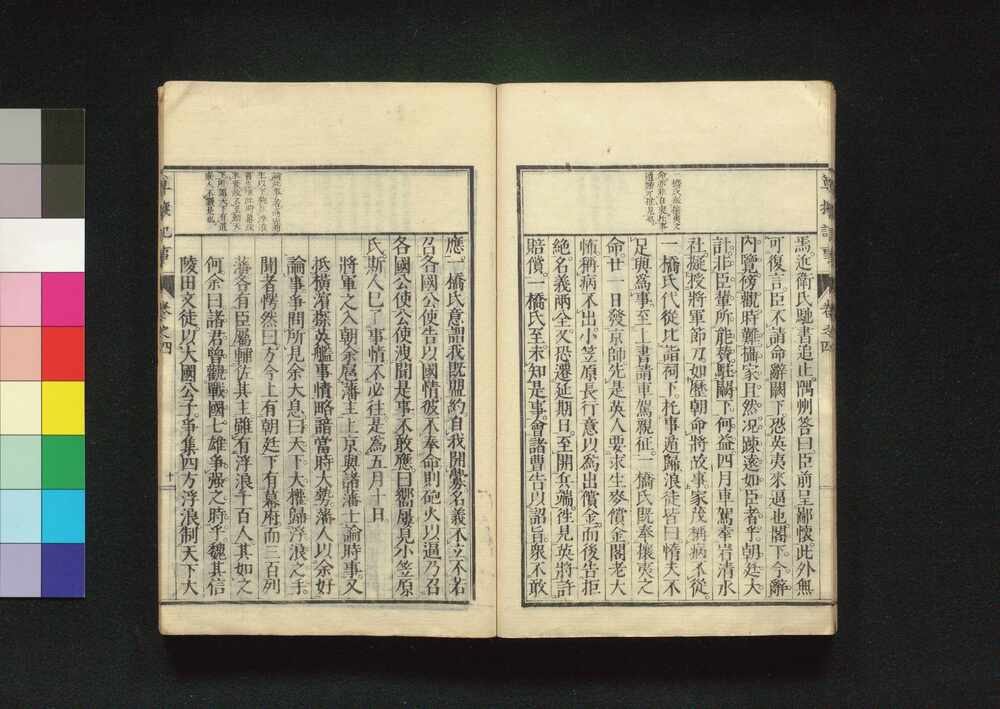 焉進衛氏馳書追止隅州答曰臣前呈鄙懷此外無
可復言臣不請命辭闕下恐英夷來逼也閣下今辭
內覽傍觀時難攝家且然況疎遠如臣者乎朝廷大
計非臣輩所能贊駐闕下何益四月車駕幸岩清水
社擬授將軍節刀如歷朝命將故事家茂稱病不從
一橋氏代從比詣祠下托事遁歸浪徒皆曰情夫不
足與爲事至上書請車駕親征一橋氏既奉攘夷之
命廿一日發京師先是英人要求生麥償金閣老大
怖稱病不出小笠原長行意以爲出償金而後告拒
絕名義兩全又恐遷延期日至開兵端徃見英將許
賠償一橋氏至未知是事會諸曹告以詔旨眾不敢
應一橋氏意謂我既盟約自我開釁名義不立不若
召各國公使告以國情彼不奉命則砲火以逼乃召
各國公使公使洩聞是事不敢應曰嚮屢見小笠原
氏斯人已了事情不必往是爲五月十日
將軍之入朝余扈藩主上京與諸藩士論時事又
抵橫濱探英艦事情略諳當時大勢藩人以余好
論事爭問所見余大息曰天下大權歸浮浪之手
聞者愕然曰方今上有朝廷下有幕府而三百列
藩各有臣屬輔佐其主雖有浮浪千百人其如之
何余曰諸君曾觀戰國七雄爭強之時乎魏其信
陵田文徒以大國公子爭集四方浮浪制天下大
尊攘紀事
卷之四
十